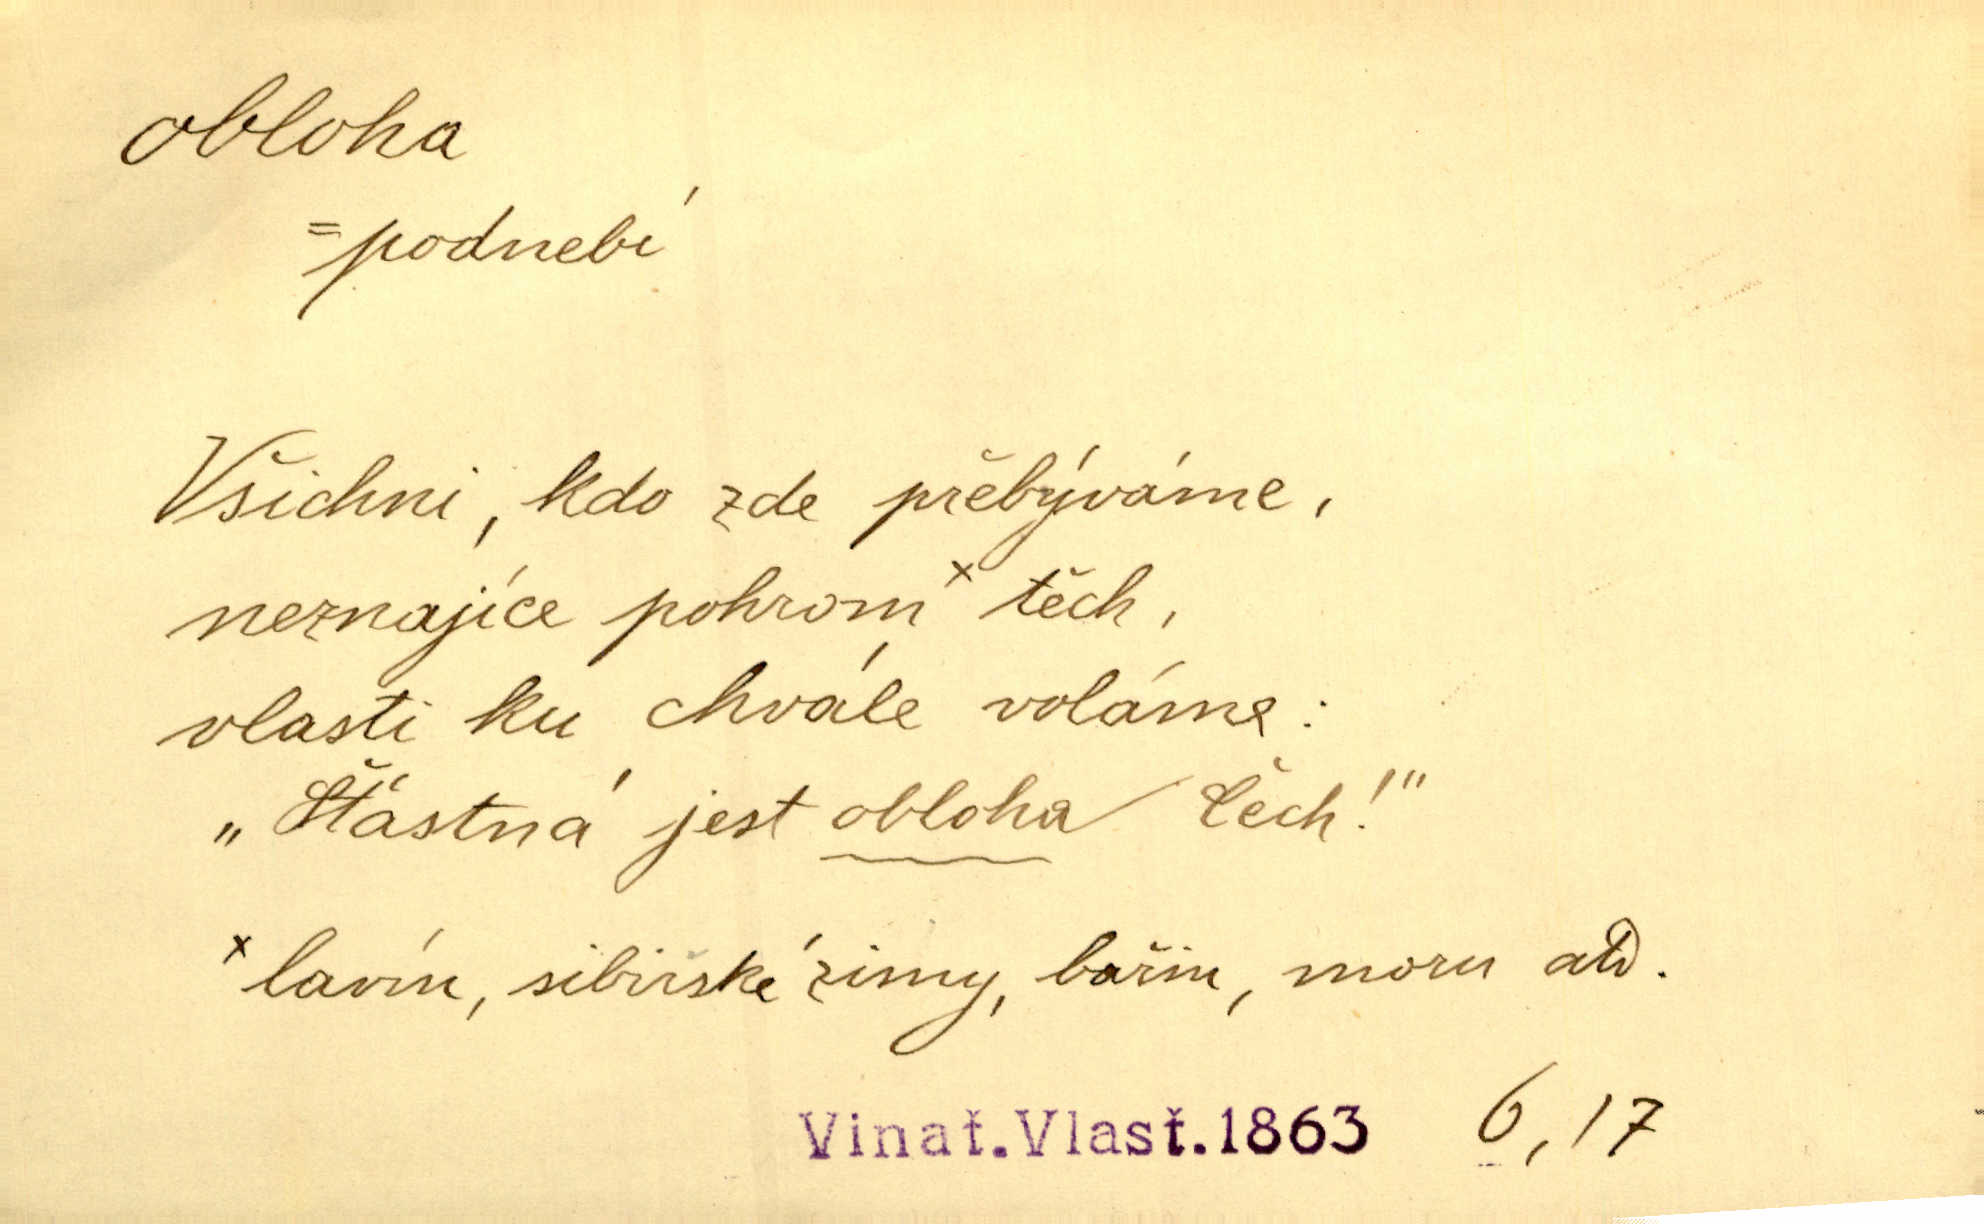 obloha
=podnebí
Všichni, kdo zde přebýváme,
neznajíce pohrom x těch,
vlasti ku chvále voláme:
„Šťastná jest obloha Čech!"
x lavín, sibiřské zimy, bařin, moru atd.
Vinař.Vlasť.1863 6,17